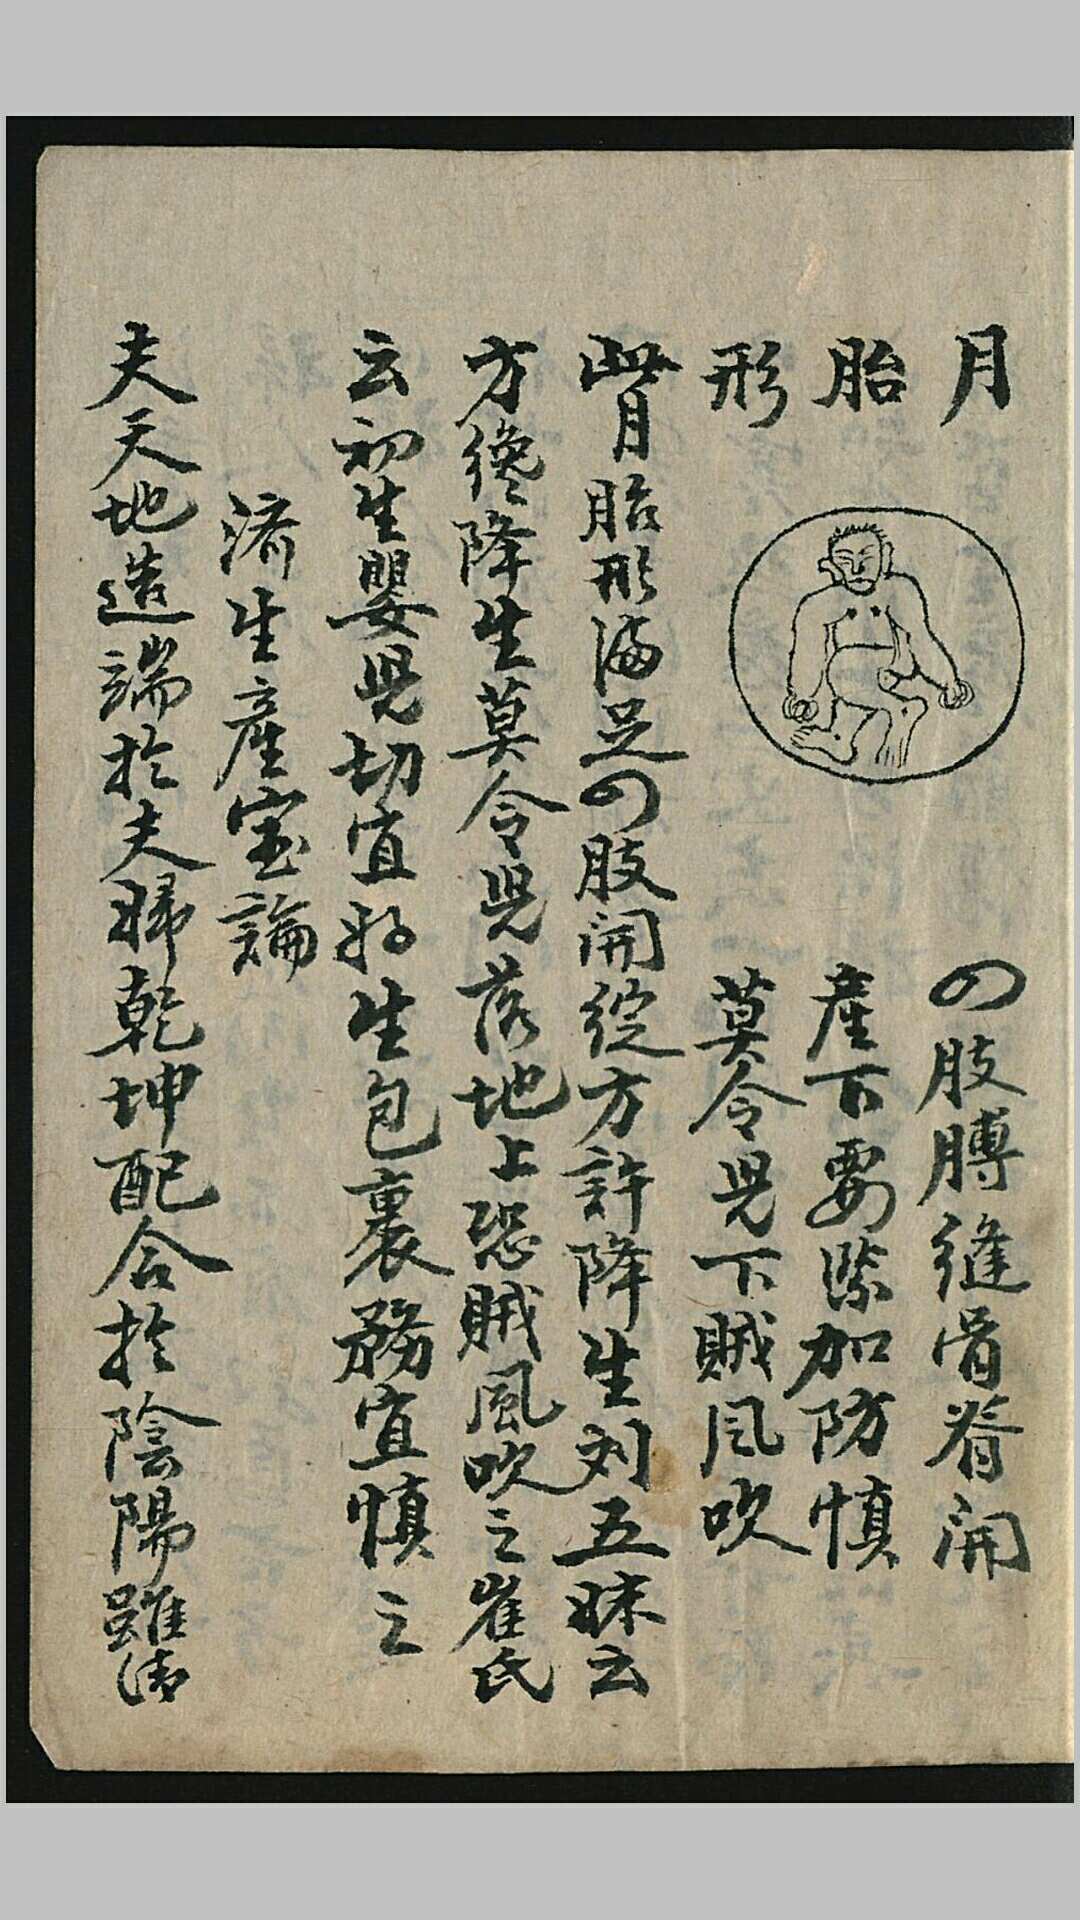 月
胎
形
四肢膊縫骨脊開
產下要緊加防慎
莫令児下賊风吹
此月胎形滿足四肢開綻方許降生刘五昧云
方纔降生莫令児落地上恐賊風吹之崔氏
云初生嬰児切宜好生包裹務宜慎之
濟生產宝論
夫天地造端於夫婦乾坤配合於陰陽雖清